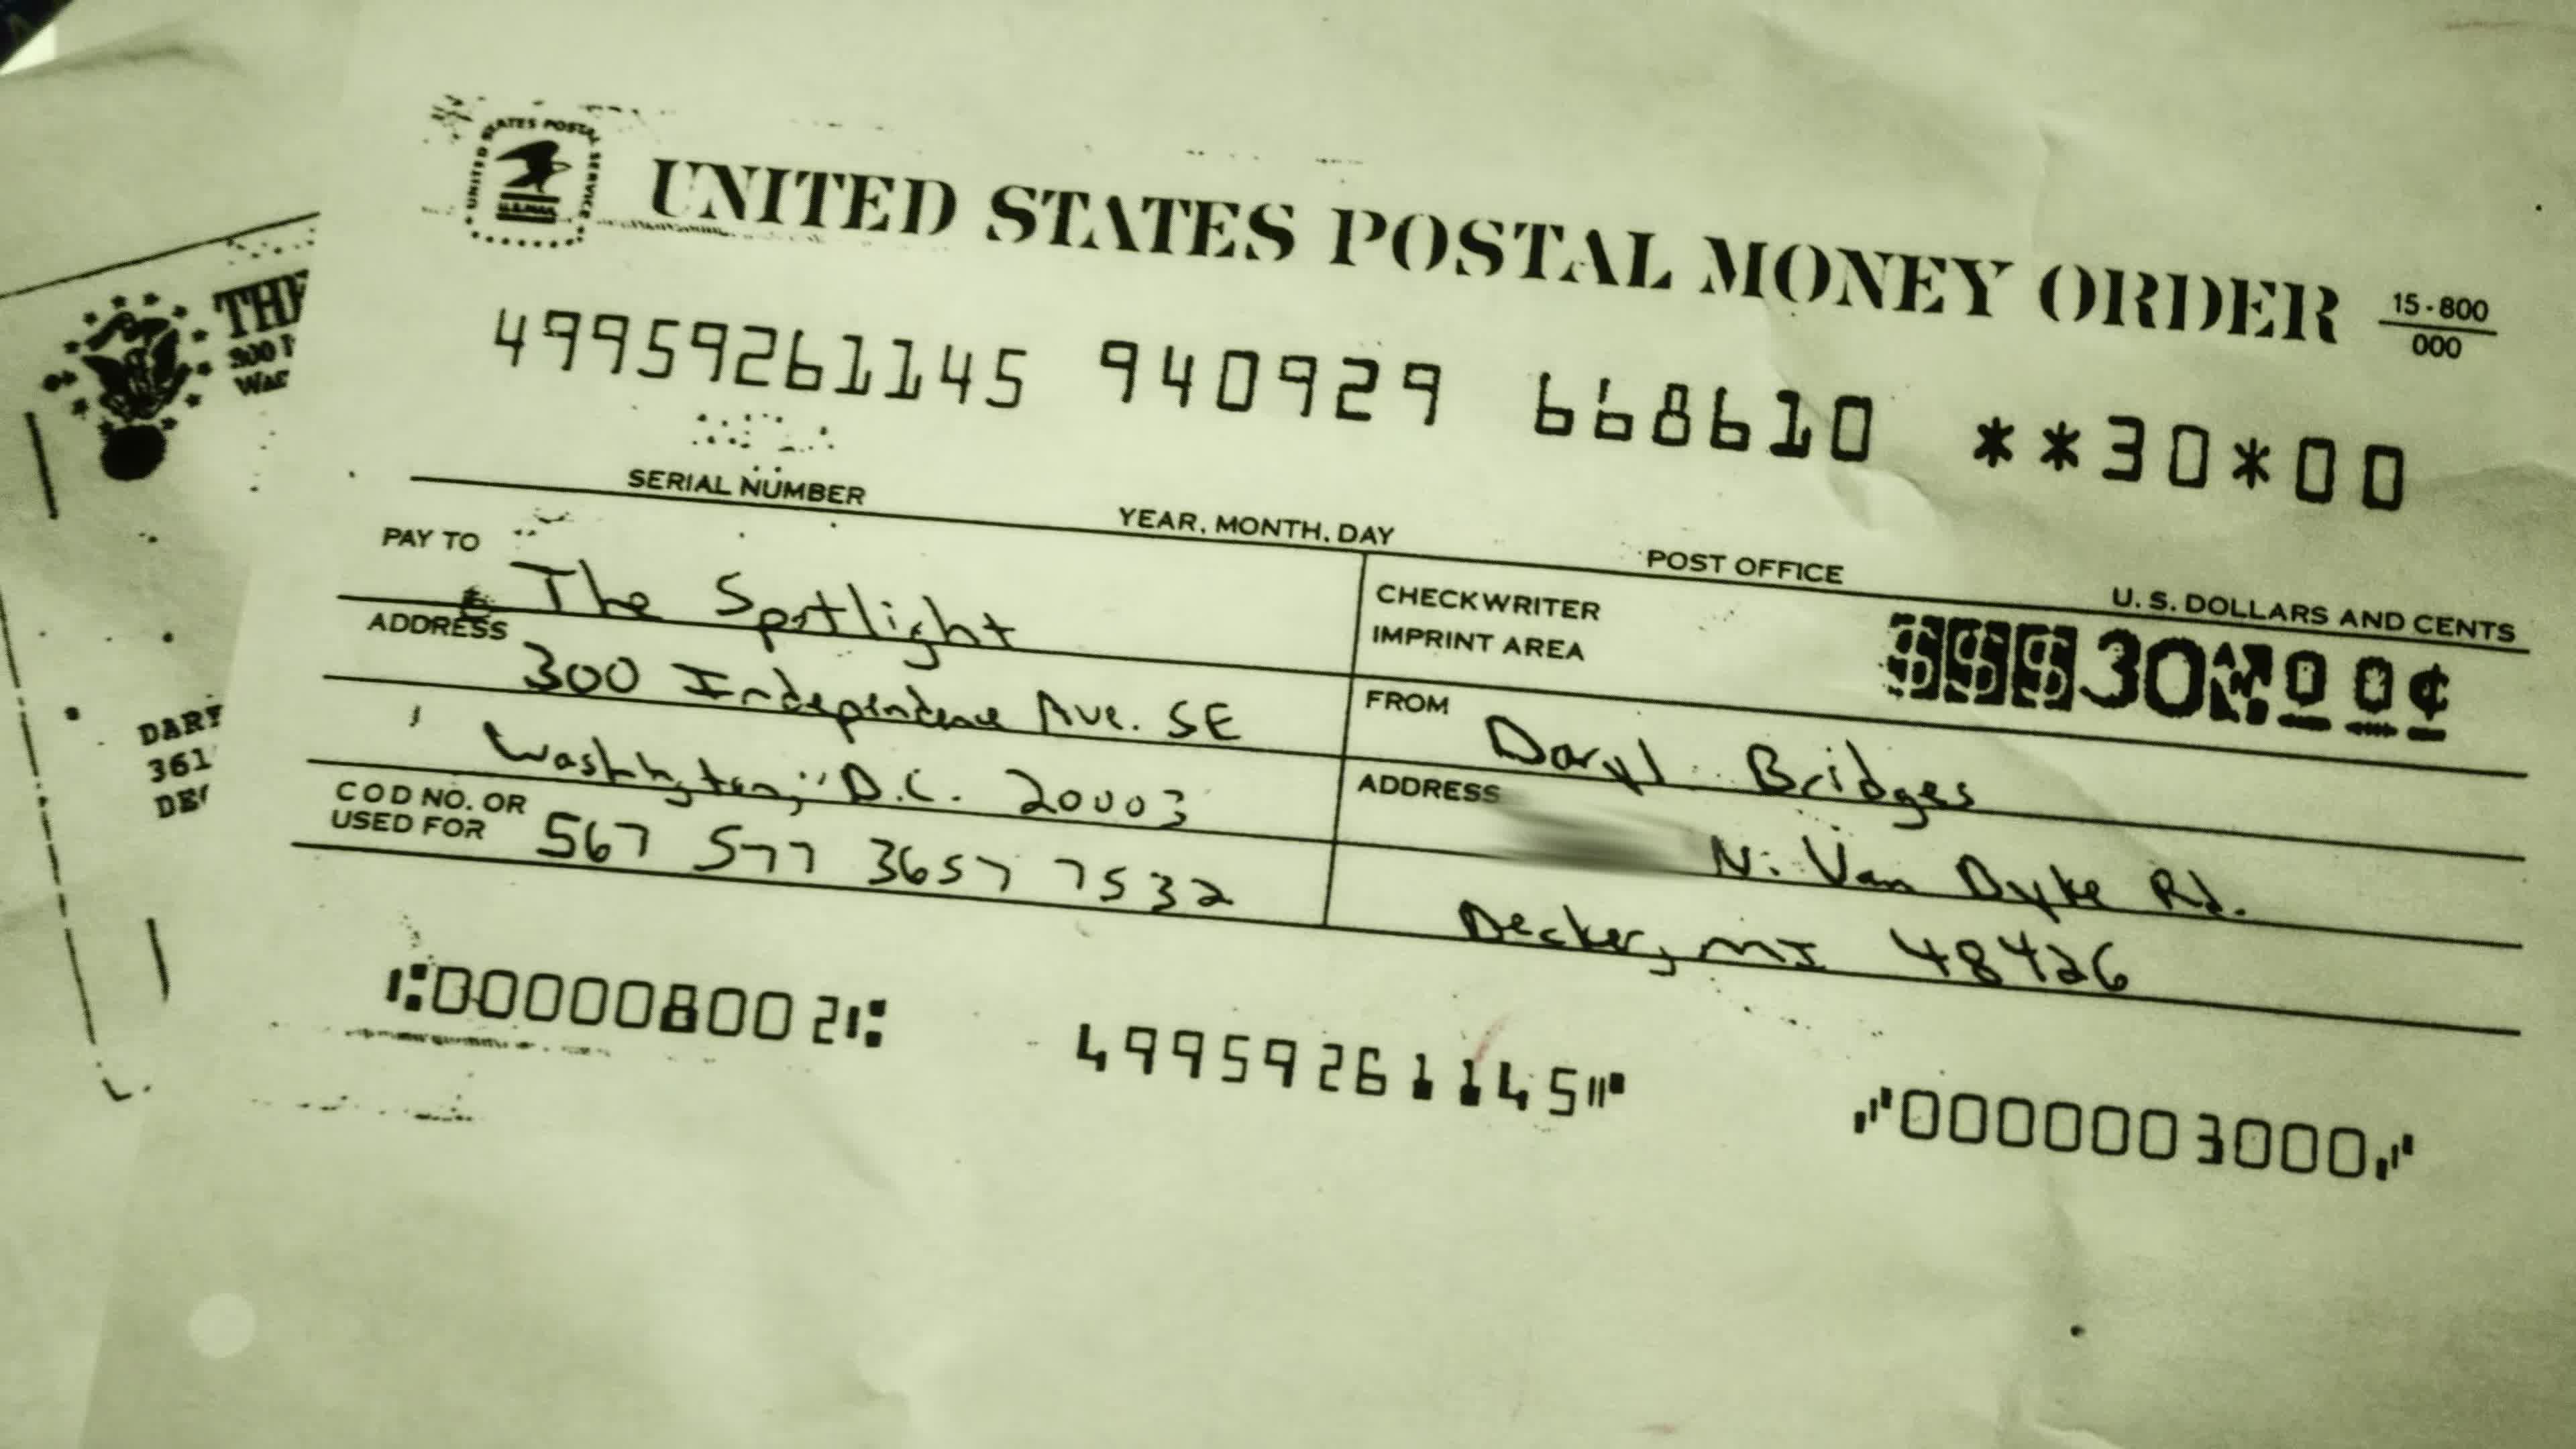 UNITED STATES POSTAL SERVICE
U.S. MAIL
UNITED STATES POSTAL MONEY ORDER
15-800
000
49959261145 940929 668610 **30*00
SERIAL NUMBER
YEAR, MONTH, DAY
POST OFFICE
U. S. DOLLARS AND CENTS
PAY TO
The Spotlight
ADDRESS
300 Independence Ave. SE
Washington, D.C. 20003
COD NO. OR
USED FOR
567 577 3657 7532
CHECKWRITER
IMPRINT AREA
$$$30 00¢
FROM
Daryl Bridges
ADDRESS
N. Van Dyke Rd.
Decker, MI 48426
000008002
49959261145
0000003000
THE
300 I
WAS
DARY
361
DE